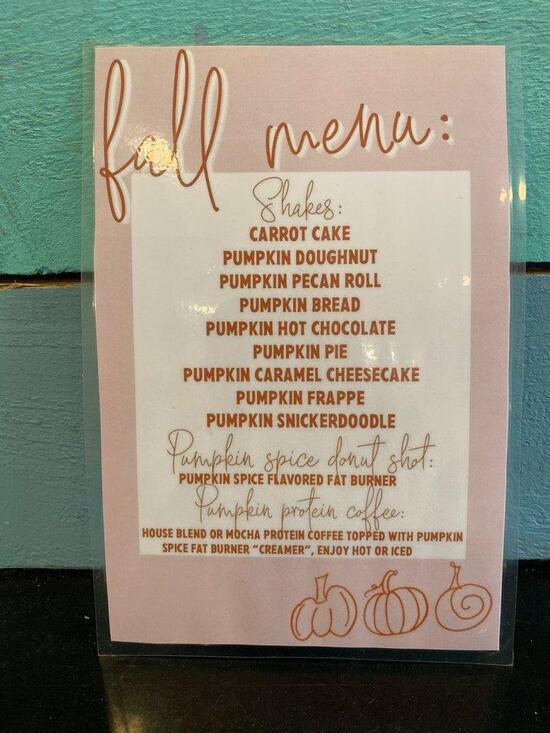 fall menu:
Shakes:
CARROT CAKE
PUMPKIN DOUGHNUT
PUMPKIN PECAN ROLL
PUMPKIN BREAD
PUMPKIN HOT CHOCOLATE
PUMPKIN PIE
PUMPKIN CARAMEL CHEESECAKE
PUMPKIN FRAPPE
PUMPKIN SNICKERDOODLE
Pumpkin spice donut shot:
PUMPKIN SPICE FLAVORED FAT BURNER
Pumpkin protein coffee:
HOUSE BLEND OR MOCHA PROTEIN COFFEE TOPPED WITH PUMPKIN
SPICE FAT BURNER “CREAMER”, ENJOY HOT OR ICED